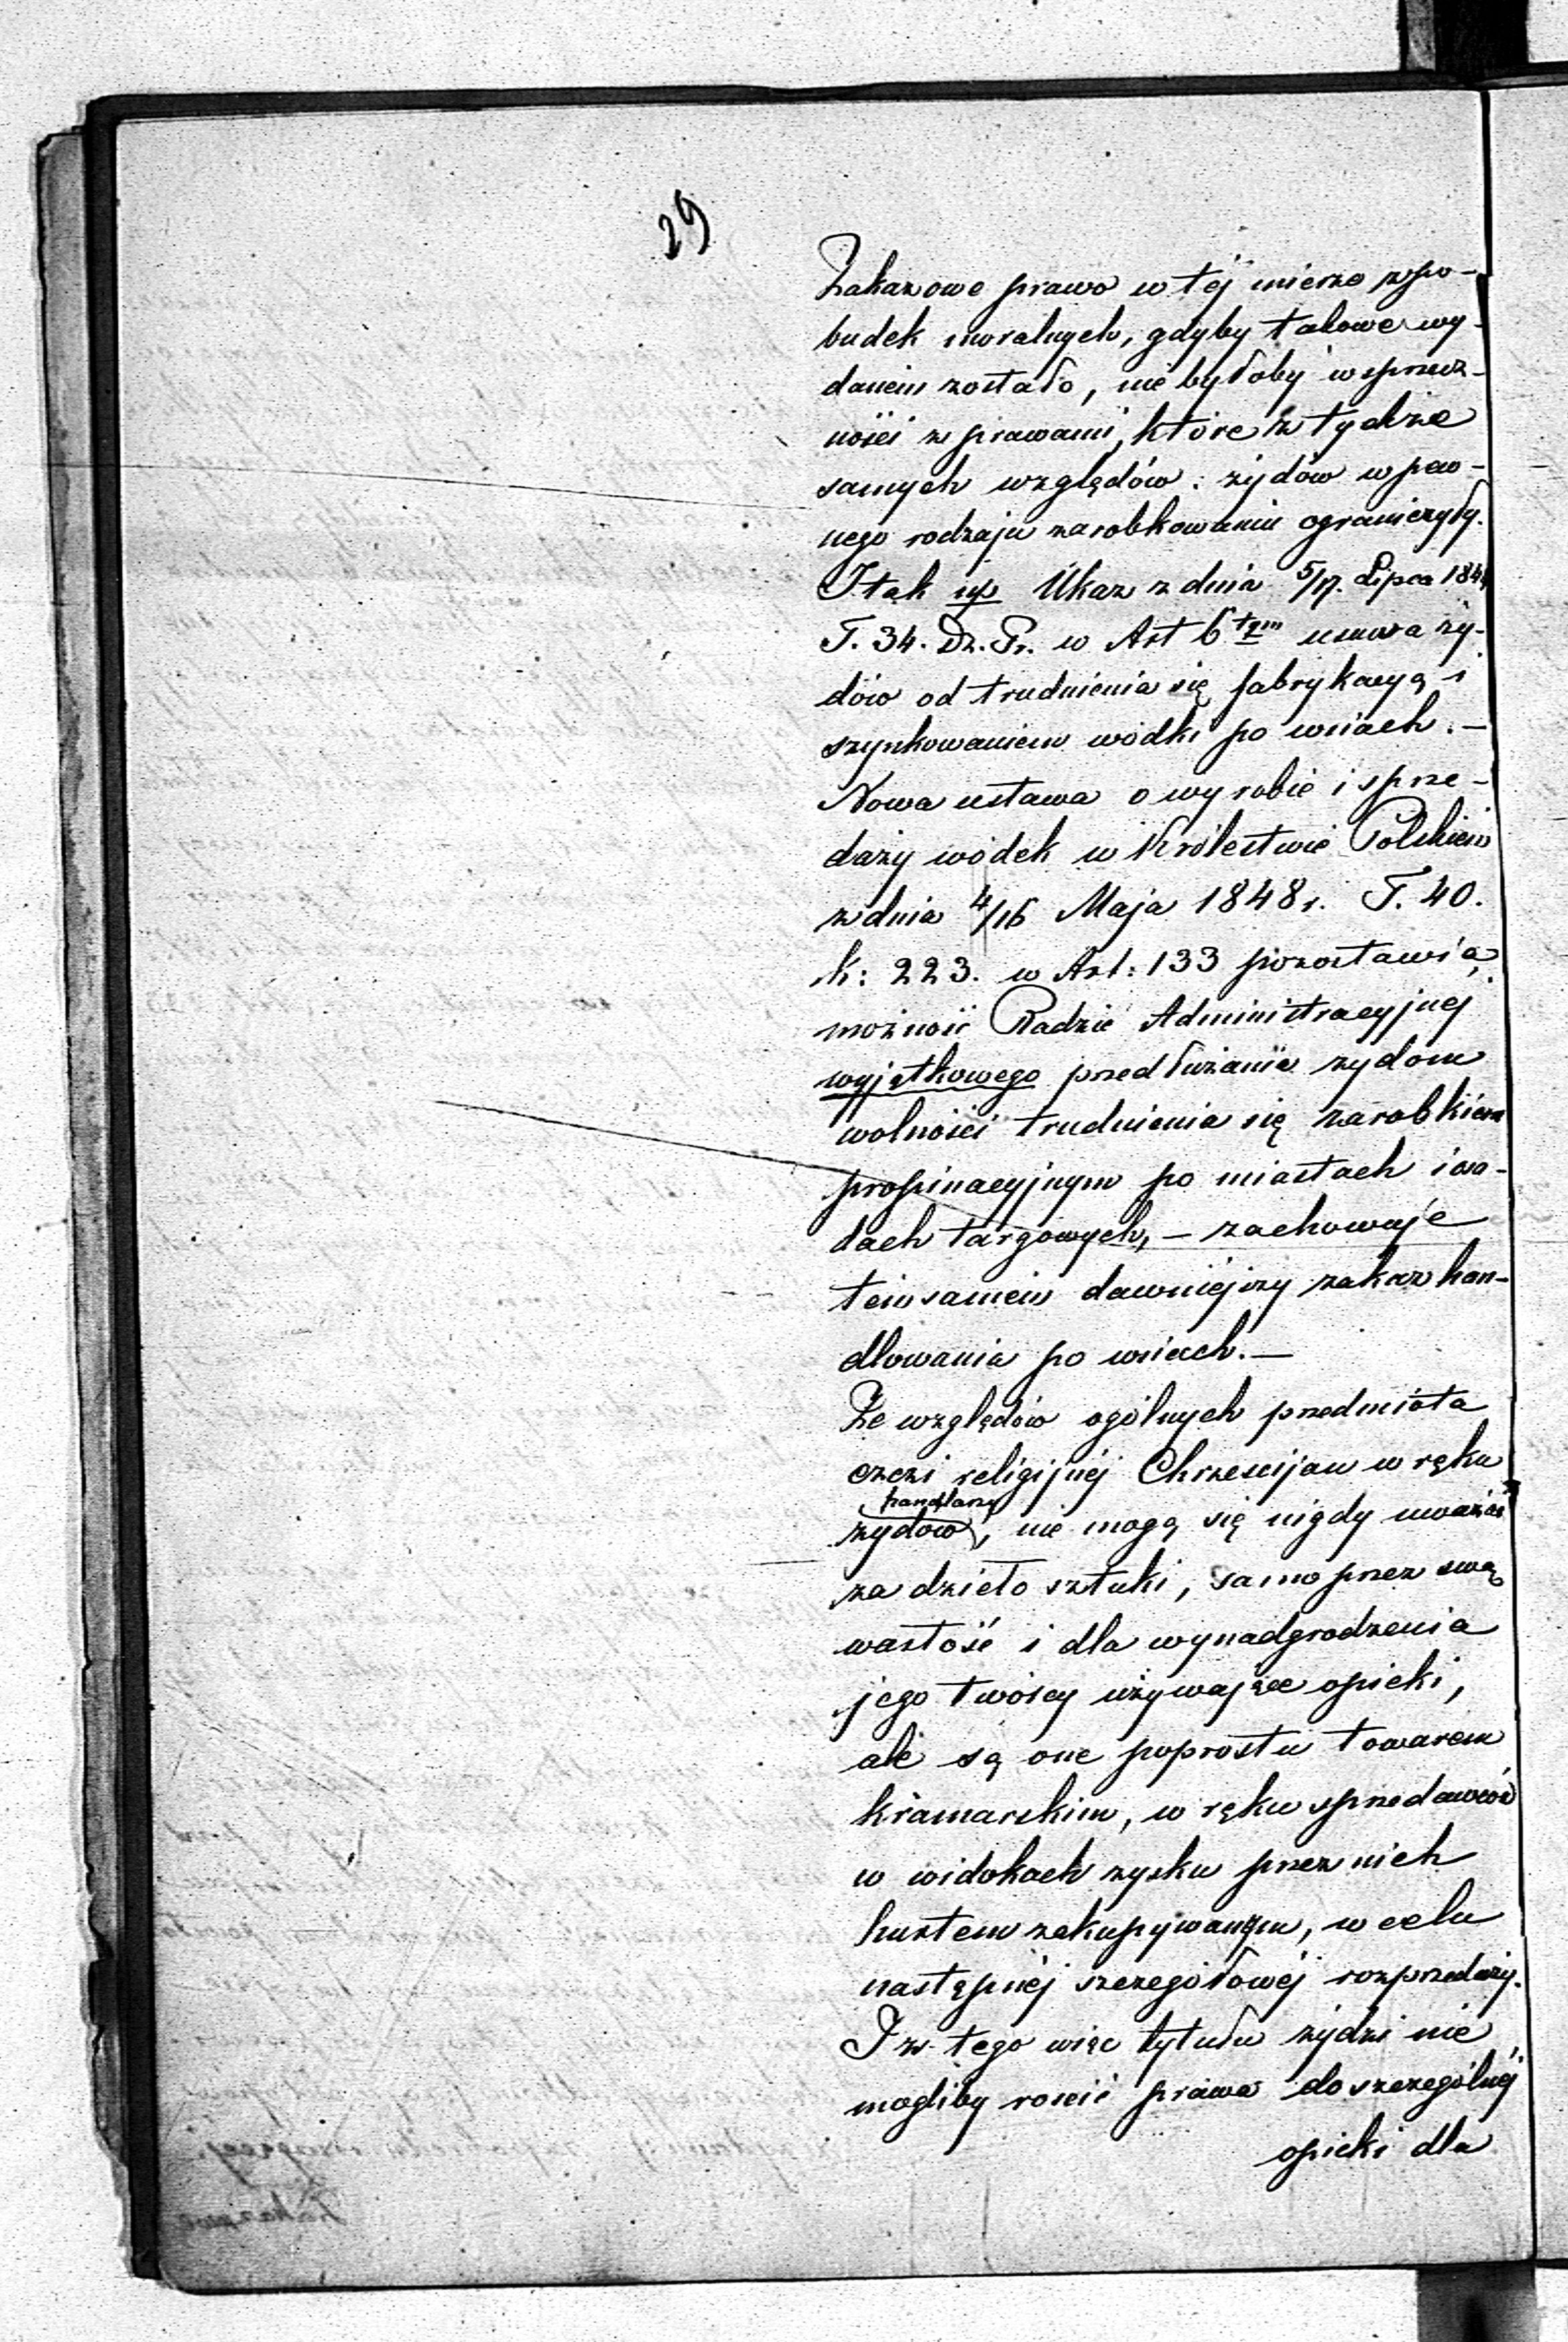 29
Zakazowe prawo w téj mierze z po-
budek moralnych, gdyby takowe wy-
danem zostało, nie byłoby w sprzecz-
ności z prawami, które z tychże
samych względów: żydów w pew-
nego rodzaju zarobkowaniu ograniczyły.
I tak np Ukaz z dnia 5/17. Lipca 1844
T. 34. Dz. Pr. w Art 6tym usuwa ży-
dów od trudnienia się fabrykacyą i
szynkowaniem wódki po wsiach. —
Nowa ustawa o wyrobie i sprze-
daży wódek w Królestwie Polskiem
z dnia 4/16 Maja 1848 r. T. 40.
k: 223. w Art: 133 pozostawia
możność Radzie Administracyjnej
wyjątkowego przedłużania żydom
wolności trudnienia się zarobkiem
propinacyjnym po miastach i osa-
dach targowych, — zachowuje
tem samem dawniejszy zakaz han-
dlowania po wsiach. —
Ze względów ogólnych przedmiota
czci religijnéj Chrześcijan w ręku
handlarzy
żydów, nie mogą się nigdy uważać
za dzieło sztuki, samo przez swą
wartość i dla wynadgrodzenia
jego twórcy używające opieki,
ale są one poprostu towarem
kramarskim, w ręku sprzedawców
w widokach zysku przez nich
hurtem zakupywanym, w celu
następnéj szczegółowéj rozprzedaży.
I z tego więc tytułu żydzi nie
mogliby rościć prawa do szczególnéj
opieki dla